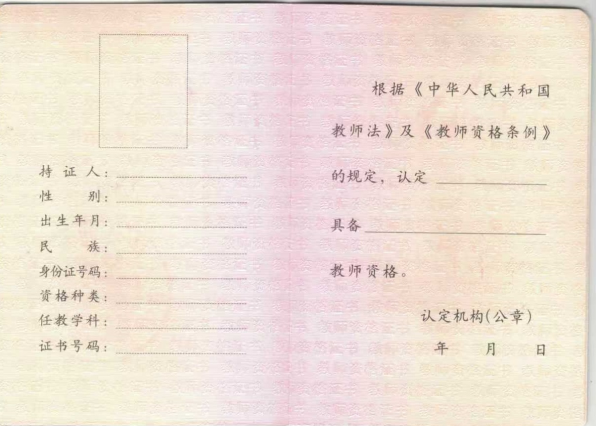 持证人：
性别：
出生年月：
民族：
身份证号码：
资格种类：
任教学科：
证书号码：
根据《中华人民共和国
教师法》及《教师资格条例》
的规定，认定
具备
教师资格。
认定机构(公章)
年 月 日